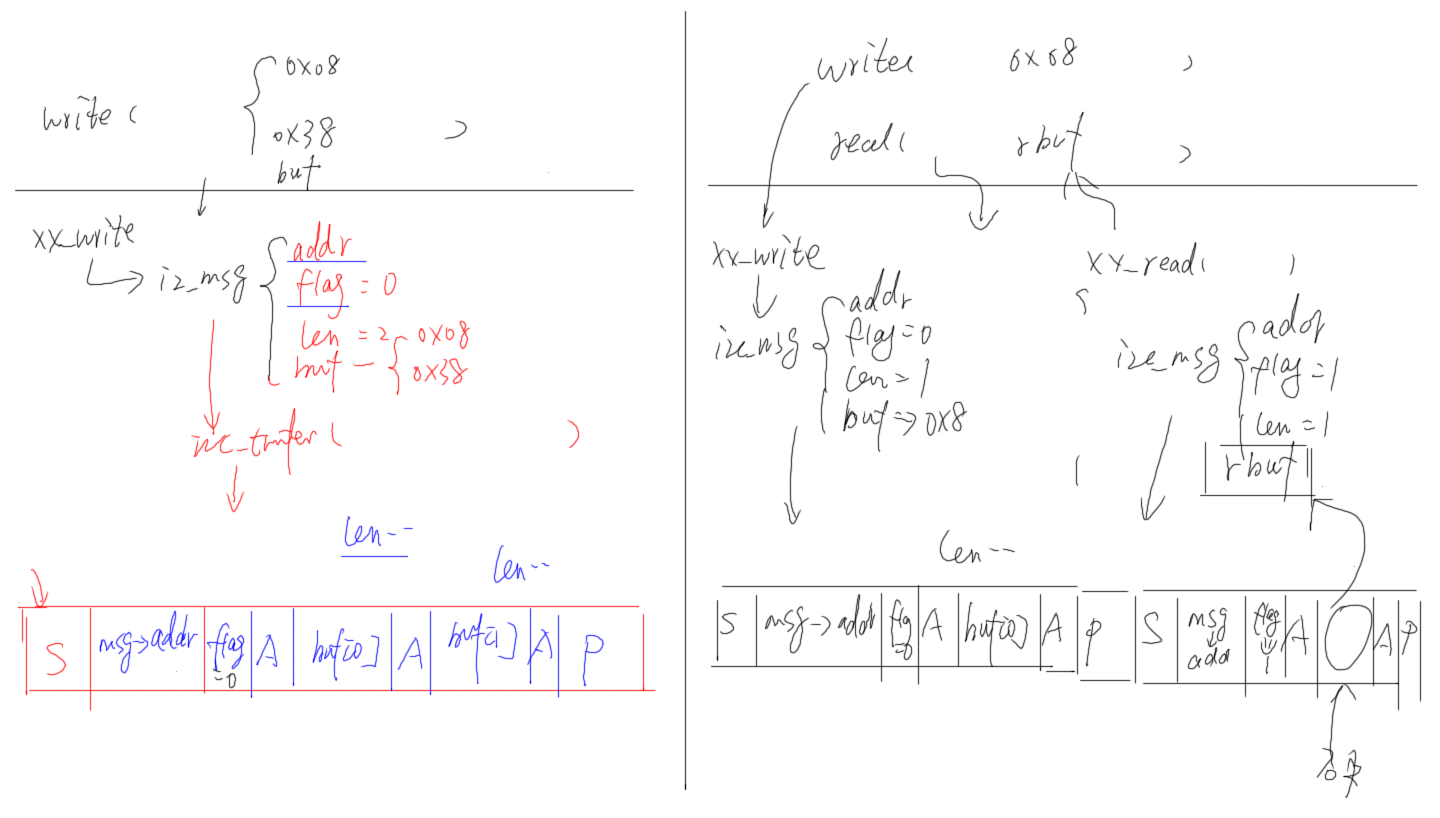 write (
0x08
0x38
)
buf
xx_write
i2_msg
addr
flag = 0
len = 2
0x08
buf —
0x38
)
len--
len--
S
msg->addr
flag
=0
A
buf[0]
A
buf[1]
A
P
write(
0x08
)
read(
rbuf
)
xx_write
i2c_msg
addr
flag=0
len=1
buf => 0x8
xx_read(
)
{
i2c_msg
addr
flag = 1
len = 1
rbuf
len--
S
msg->addr
flag
=0
A
buf[0]
A
P
S
msg
addr
flag
1
A
A
P